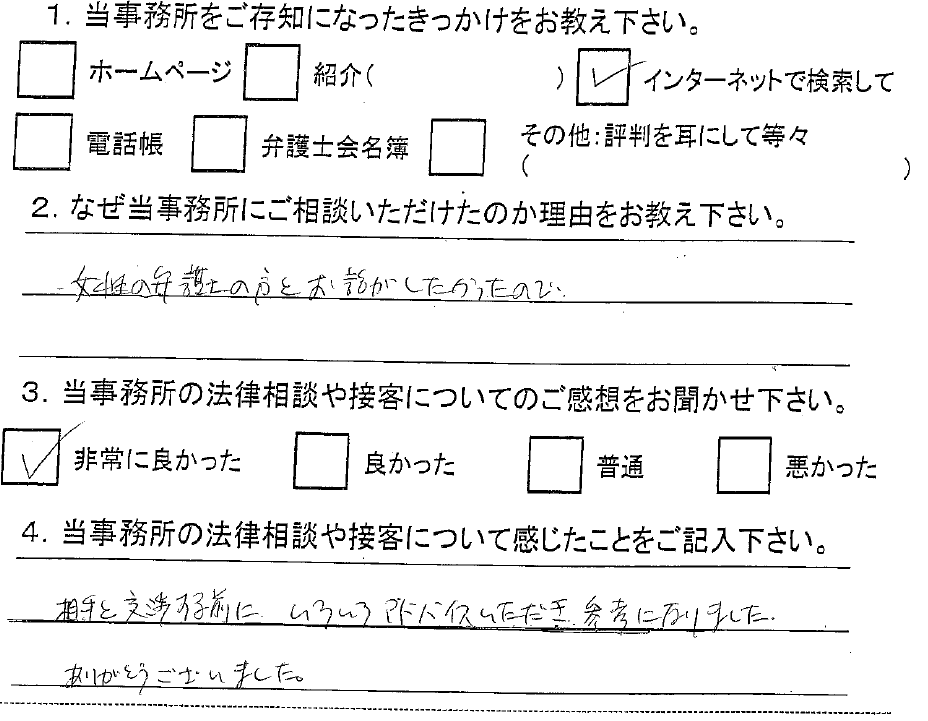 1. 当事務所をご存知になったきっかけをお教え下さい。
ホームページ 紹介( ) インターネットで検索して
電話帳 弁護士会名簿 その他:評判を耳にして等々
( )
2. なぜ当事務所にご相談いただけたのか理由をお教え下さい。
女性の弁護士の方とお話がしたかったので.
3. 当事務所の法律相談や接客についてのご感想をお聞かせ下さい。
非常に良かった 良かった 普通 悪かった
4. 当事務所の法律相談や接客について感じたことをご記入下さい。
相手と交渉する前に いろいろアドバイスいただき 参考になりました.
ありがとうございました。